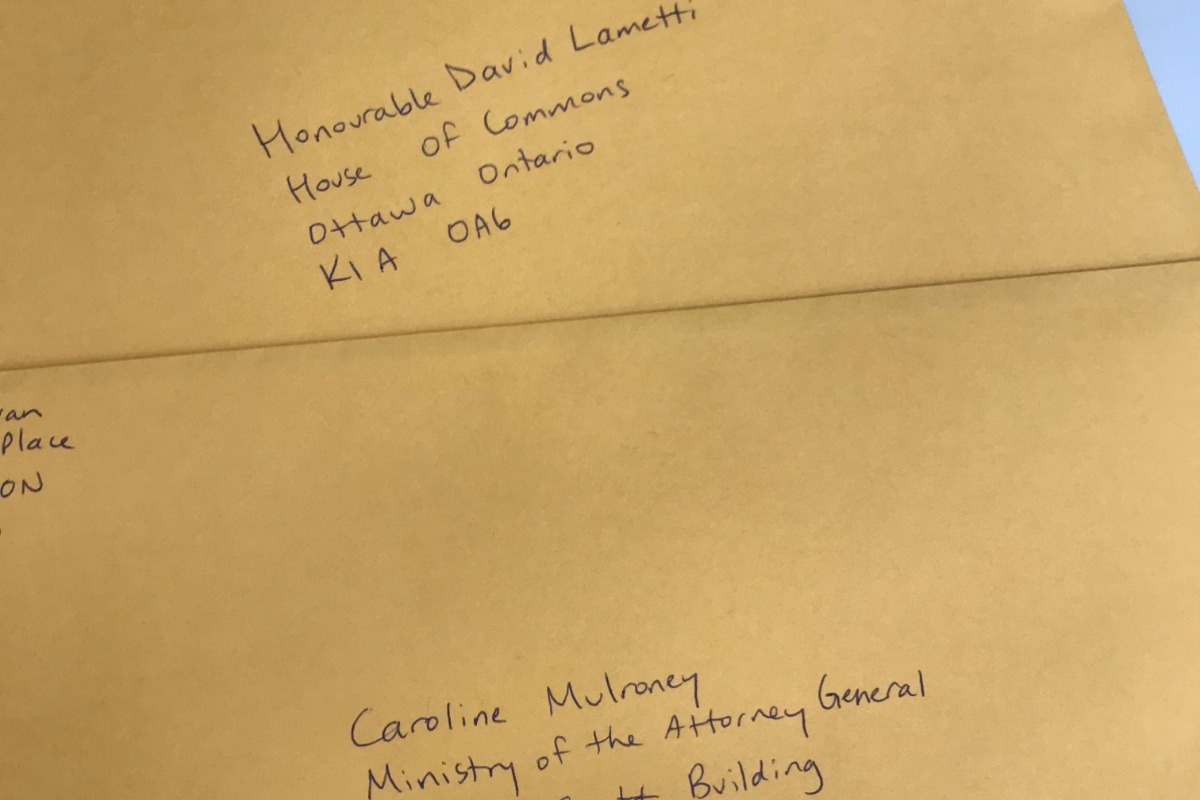 Honourable David Lametti
House of Commons
Ottawa Ontario
K1A 0A6
Place
ON
Caroline Mulroney
Ministry of the Attorney General
Building